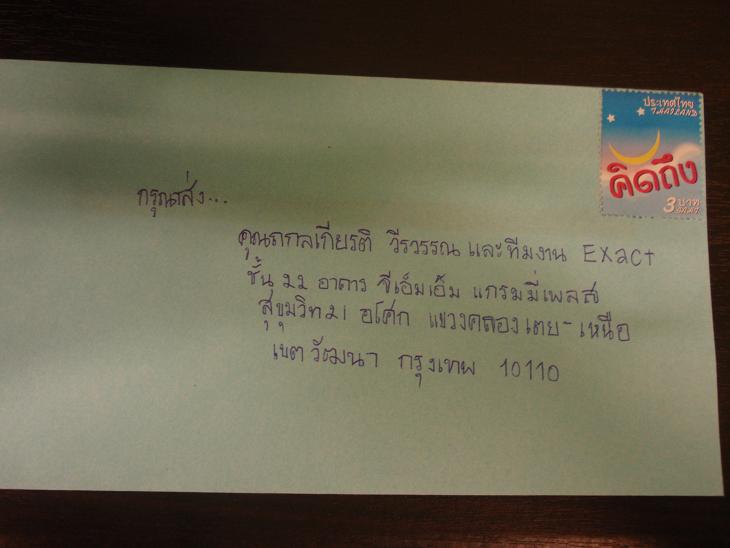 ประเทศไทย
THAILAND
คิดถึง
3 บาท
BAHT
กรุณาส่ง...
คุณถกลเกียรติ วีรวรรณ และทีมงาน Exact
ชั้น ๒๒ อาคาร จีเอ็มเอ็ม แกรมมี่เพลส
สุขุมวิท ๒๑ อโศก แขวงคลองเตย-เหนือ
เขตวัฒนา กรุงเทพ 10110